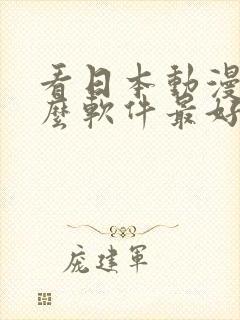 看日本動漫
麼軟件最好
龐建軍